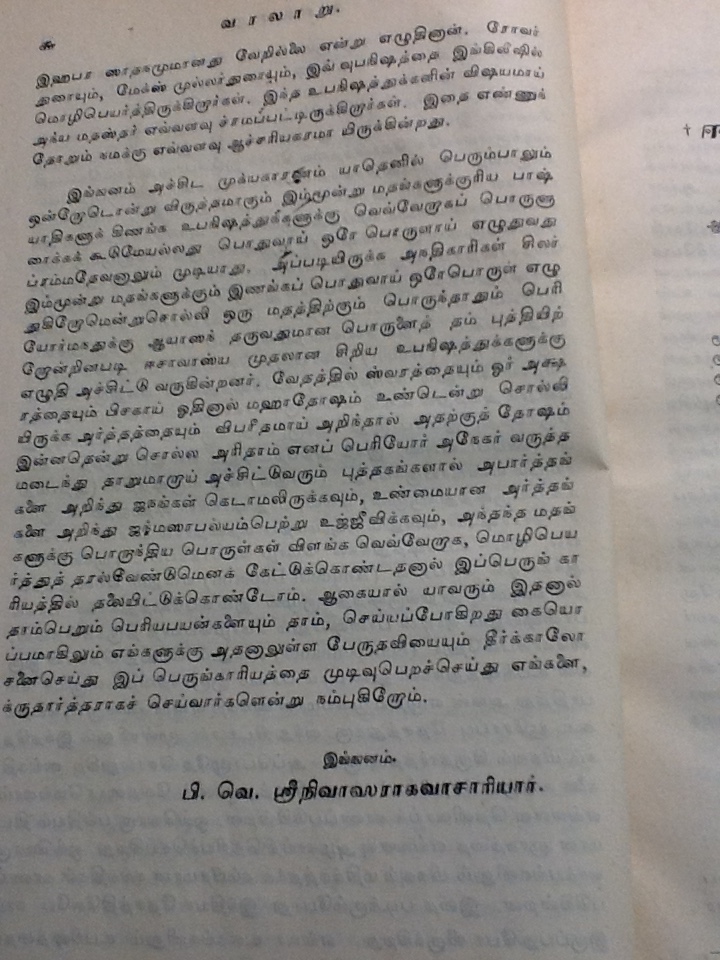 வரலாறு.
௬
இஹபர ஸாதநமுமானது வேறில்லை என்று எழுதினான். ரோவர்
துரையும், மேக்ஸ் முல்லர்துரையும், இவ் வுபநிஷத்தை இங்கிலீஷில்
மொழிபெயர்த்திருக்கிறார்கள். இந்த உபநிஷத்துக்களின் விஷயமாய்
அந்ய மதஸ்தர் எவ்வளவு ச்ரமப்பட்டிருக்கிறார்கள். இதை எண்ணுந்
தோறும் நமக்கு எவ்வளவு ஆச்சரியகரமா யிருக்கின்றது.
இங்ஙனம் அச்சிட முக்யகாரணம் யாதெனில் பெரும்பாலும்
ஒன்றோடொன்று விருத்தமாகும் இம்மூன்று மதங்களுக்குரிய பாஷ்
யாதிகளுக் கிணங்க உபநிஷத்துக்களுக்கு வெவ்வேறாகப் பொருளு
ரைக்கக் கூடுமேயல்லது பொதுவாய் ஒரே பொருளாய் எழுதுவது
ப்ரம்மதேவனாலும் முடியாது. அப்படியிருக்க அநதிகாரிகள் சிலர்
இம்மூன்று மதங்களுக்கும் இணங்கப் பொதுவாய் ஒரேபொருள் எழு
துகிறோமென்றுசொல்லி ஒரு மதத்திற்கும் பொருந்தாதும் பெரி
யோர்மநதுக்கு ஆயாஸந் தருவதுமான பொருளைத் தம் புத்தியிற்
றோன்றினபடி ஈசாவாஸ்ய முதலான சிறிய உபநிஷத்துக்களுக்கு
எழுதி அச்சிட்டு வருகின்றனர். வேதத்தில் ஸ்வரத்தையும் ஓர் அக்ஷ
ரத்தையும் பிசகாய் ஓதினால் மஹாதோஷம் உண்டென்று சொல்லி
யிருக்க அர்த்தத்தையும் விபரீதமாய் அறிந்தால் அதற்குத் தோஷம்
இன்னதென்று சொல்ல அரிதாம் எனப் பெரியோர் அநேகர் வருத்த
மடைந்து தாறுமாறாய் அச்சிட்டுவரும் புத்தகங்களால் அபார்த்தங்
களை அறிந்து ஜநங்கள் கெடாமலிருக்கவும், உண்மையான அர்த்தங்
களை அறிந்து ஜந்மஸாபல்யம்பெற்று உஜ்ஜீவிக்கவும், அந்தந்த மதங்
களுக்கு பொருந்திய பொருள்கள் விளங்க வெவ்வேறாக, மொழிபெய
ர்த்துத் தரல்வேண்டுமெனக் கேட்டுக்கொண்டதனால் இப்பெருங் கா
ரியத்தில் தலையிட்டுக்கொண்டோம். ஆகையால் யாவரும் இதனால்
தாம்பெறும் பெரியபயன்களையும் தாம், செய்யப்போகிறது கையொ
ப்பமாகிலும் எங்களுக்கு அதனாலுள்ள பேருதவியையும் தீர்க்காலோ
சனைசெய்து இப் பெருங்காரியத்தை முடிவுபெறச்செய்து எங்களை,
க்ருதார்த்தராகச் செய்வார்களென்று நம்புகிறோம்.
இங்ஙனம்.
பி. வெ. ஸ்ரீநிவாஸராகவாசாரியார்.